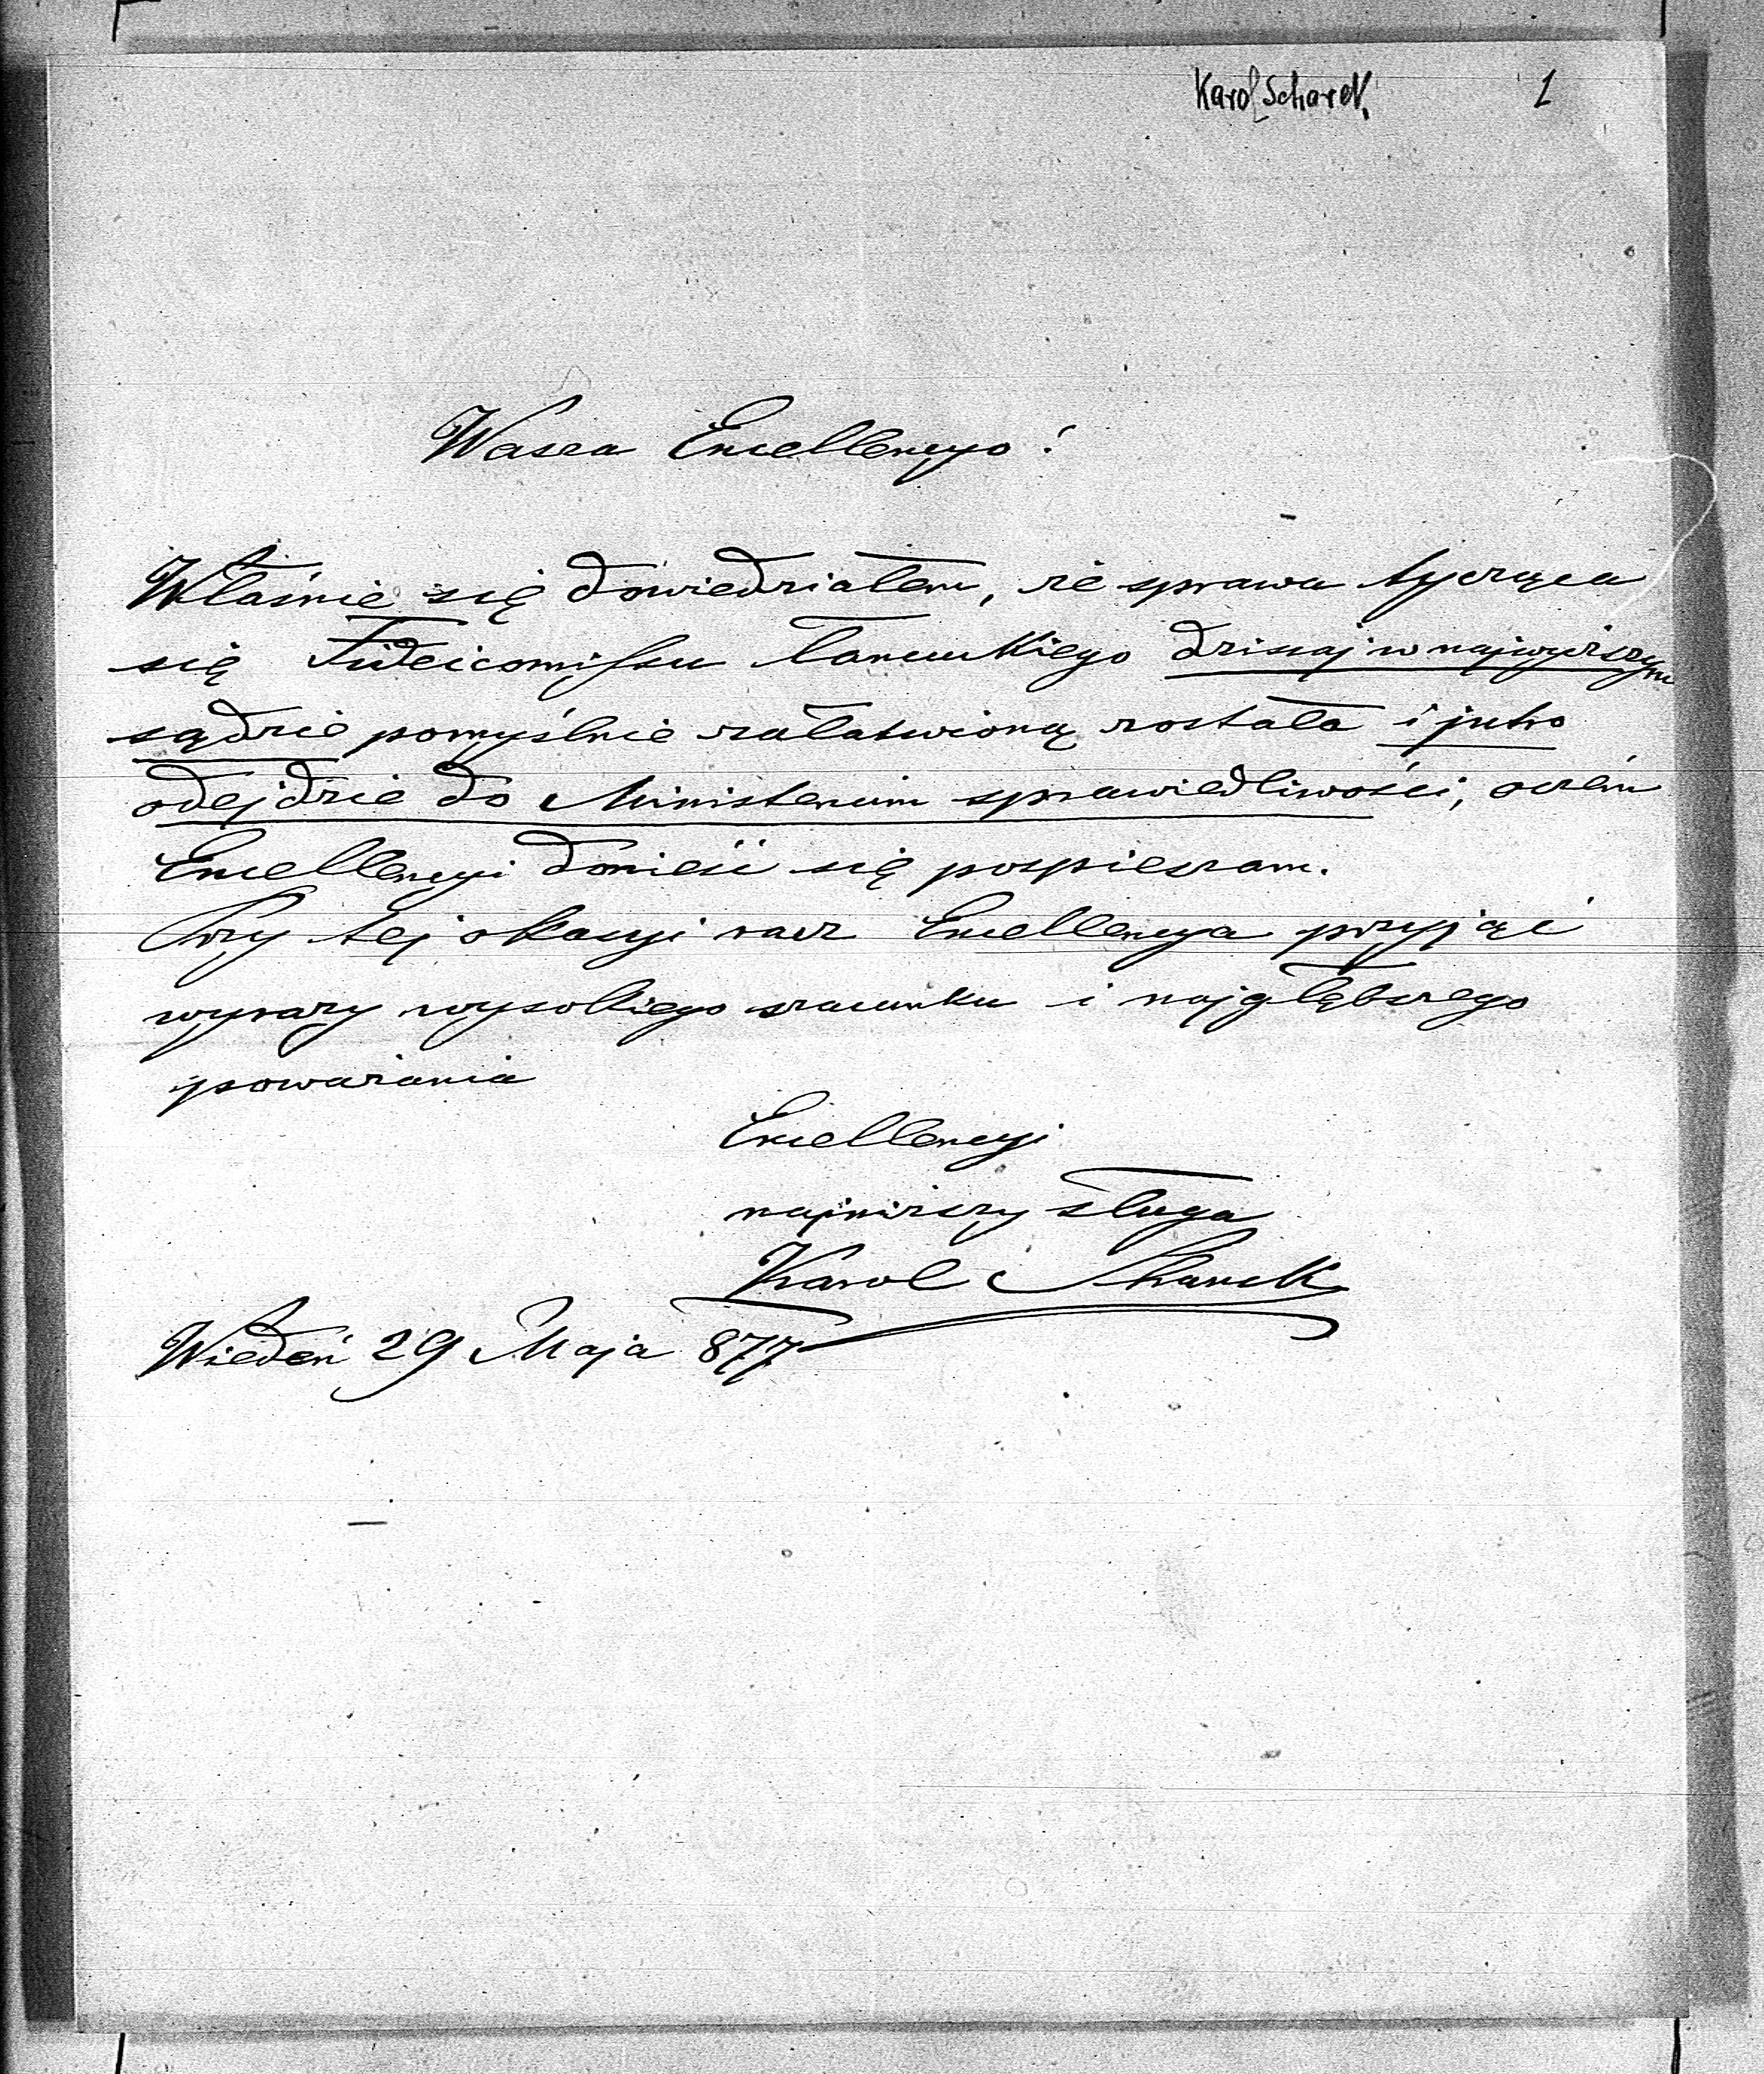 Karol Scharck 1
Wasza Excellencyo!
Właśnie się dowiedziałem, że sprawa tycząca
się Fideicomissu łancuckiego dzisiaj w najwyższym
sądzie pomyślnie załatwioną została i jutro
odejdzie do Ministerium sprawiedliwości, oczém
Excellencyi donieść się pospieszam.
Przy tej okazyi racz Excellencya przyjąć
wyrazy wysokiego szacunku i najgłębszego
poważania
Excellencyi
najniższy sługa
Karol
Wiedeń 29 Maja 877